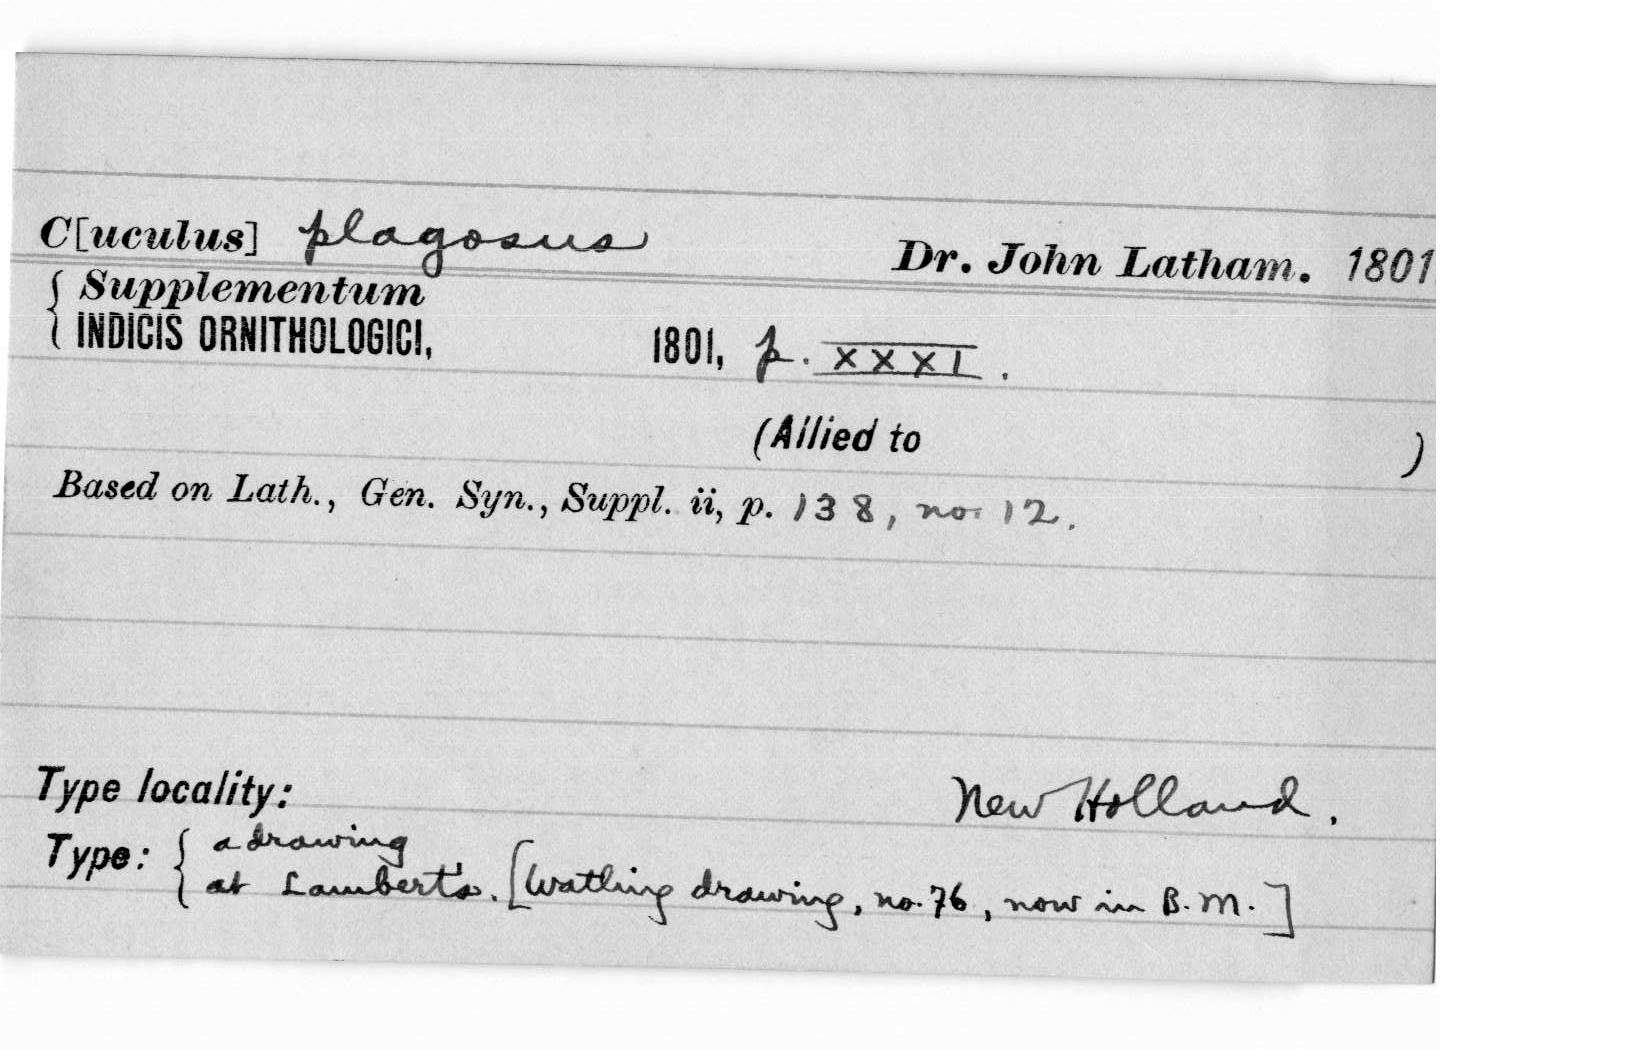 C[uculus] plagosus Dr. John Latham. 1801
{ Supplementum
INDICIS ORNITHOLOGICI, 1801, p. XXXI.
(Allied to )
Based on Lath., Gen. Syn., Suppl. ii, p. 138, no. 12.
Type locality: New Holland.
Type: { a drawing
at Lambert's. [Watling drawing, no. 76, now in B.M.]